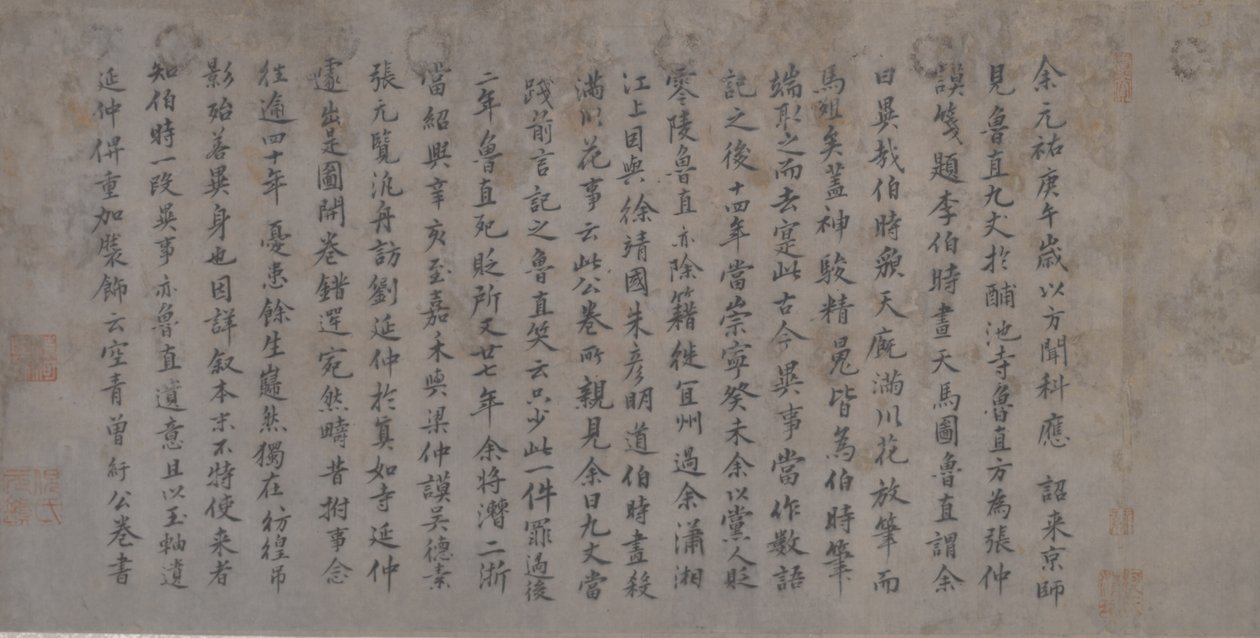 余元祐庚午歲以方聞科應 詔来京師
見魯直九丈於酺池寺魯直方為張仲
謨箋題李伯時畫天馬圖魯直謂余
曰異哉伯時貌天廄滿川花放筆而
馬殂矣蓋神駿精魄皆為伯時筆
端取之而去寔此古今異事當作數語
記之後十四年當崇寧癸未余以黨人貶
零陵魯直亦除籍徙宜州過余瀟湘
江上因與徐靖國朱彦明道伯時畫殺
滿川花事云此公卷所親見余曰九丈當
踐前言記之魯直笑云只少此一件罪過後
二年魯直死貶所又廿七年余將漕二浙
當紹興辛亥至嘉禾與梁仲謨吳德素
張元覽泛舟訪劉延仲於真如寺延仲
遽出是圖開卷錯愕宛然疇昔拊事念
往逾四十年憂患餘生巋然獨在彷徨弔
影殆若異身也因詳叙本末不特使来者
知伯時一段異事亦魯直遺意且以玉軸遺
延仲俾重加裝飾云空青曾紆公卷書